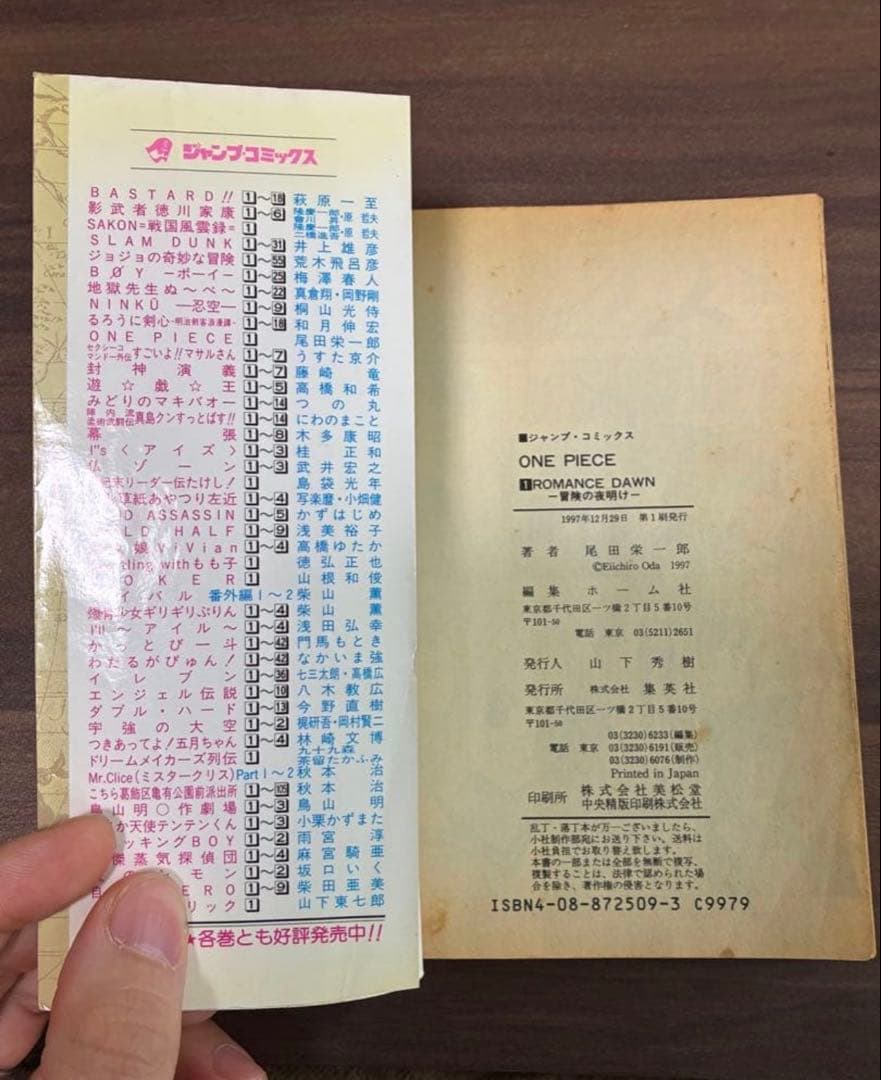 ジャンプ・コミックス
BASTARD!! 1〜18 萩原一至
影武者徳川家康 1〜6 隆慶一郎・會川昇・原哲夫
SAKON=戦国風雲録= 1 隆慶一郎・二橋進吾・原哲夫
SLAM DUNK 1〜31 井上雄彦
ジョジョの奇妙な冒険 1〜55 荒木飛呂彦
BØY —ボーイ— 1〜25 梅澤春人
地獄先生ぬ〜べ〜 1〜22 真倉翔・岡野剛
NINKŪ —忍空— 1〜9 桐山光侍
るろうに剣心-明治剣客浪漫譚- 1〜18 和月伸宏
ONE PIECE 1 尾田栄一郎
セクシーコマンドー外伝すごいよ!!マサルさん 1〜7 うすた京介
封神演義 1〜7 藤崎竜
遊☆戯☆王 1〜5 高橋和希
みどりのマキバオー 1〜14 つの丸
陣内流柔術武闘伝真島クンすっとばす!! 1〜14 にわのまこと
幕張 1〜8 木多康昭
I"s〈アイズ〉 1〜3 桂正和
仏ゾーン 1〜3 武井宏之
紀末リーダー伝たけし! 1 島袋光年
草紙あやつり左近 1〜4 写楽麿・小畑健
D ASSASSIN 1〜5 かずはじめ
LD HALF 1〜9 浅美裕子
娘VIVian 1〜4 高橋ゆたか
tling withもも子 1 徳弘正也
OKER 1 山根和俊
イバル 番外編1〜2 柴山薫
爆骨少女ギリギリぷりん 1〜4 柴山薫
I'll〜アイル〜 1〜4 浅田弘幸
かっとび一斗 1〜42 門馬もとき
わたるがぴゅん! 1〜42 なかいま強
イレブン 1〜36 七三太朗・高橋広
エンジェル伝説 1〜10 八木教広
ダブル・ハード 1〜13 今野直樹
宇強の大空 1〜2 梶研吾・岡村賢二
つきあってよ!五月ちゃん 1〜4 林崎文博
ドリームメイカーズ列伝 1 九十九森 茶留たかふみ
Mr.Clice(ミスタークリス) Part 1〜2 秋本治
こちら葛飾区亀有公園前派出所 1〜105 秋本治
鳥山明〇作劇場 1〜3 鳥山明
か天使テンテンくん 1〜3 小栗かずまた
ッキングBOY 1〜2 雨宮淳
傑蒸気探偵団 1〜4 麻宮騎亜
の モン 1〜2 坂口いく
自 ERO 1〜9 柴田亜美
リック 1 山下東七郎
★各巻とも好評発売中!!
■ジャンプ・コミックス
ONE PIECE
1 ROMANCE DAWN
—冒険の夜明け—
1997年12月29日 第1刷発行
著者 尾田栄一郎
©Eiichiro Oda 1997
編集 ホーム社
東京都千代田区一ツ橋2丁目5番10号
〒101-50
電話 東京 03(5211)2651
発行人 山下秀樹
発行所 株式会社 集英社
東京都千代田区一ツ橋2丁目5番10号
〒101-50
03(3230)6233(編集)
電話 東京 03(3230)6191(販売)
03(3230)6076(制作)
Printed in Japan
印刷所 株式会社美松堂
中央精版印刷株式会社
乱丁・落丁本が万一ございましたら、
小社制作部宛にお送り下さい。送料は
小社負担でお取り替え致します。
本書の一部または全部を無断で複写、
複製することは、法律で認められた場
合を除き、著作権の侵害となります。
ISBN4-08-872509-3 C9979